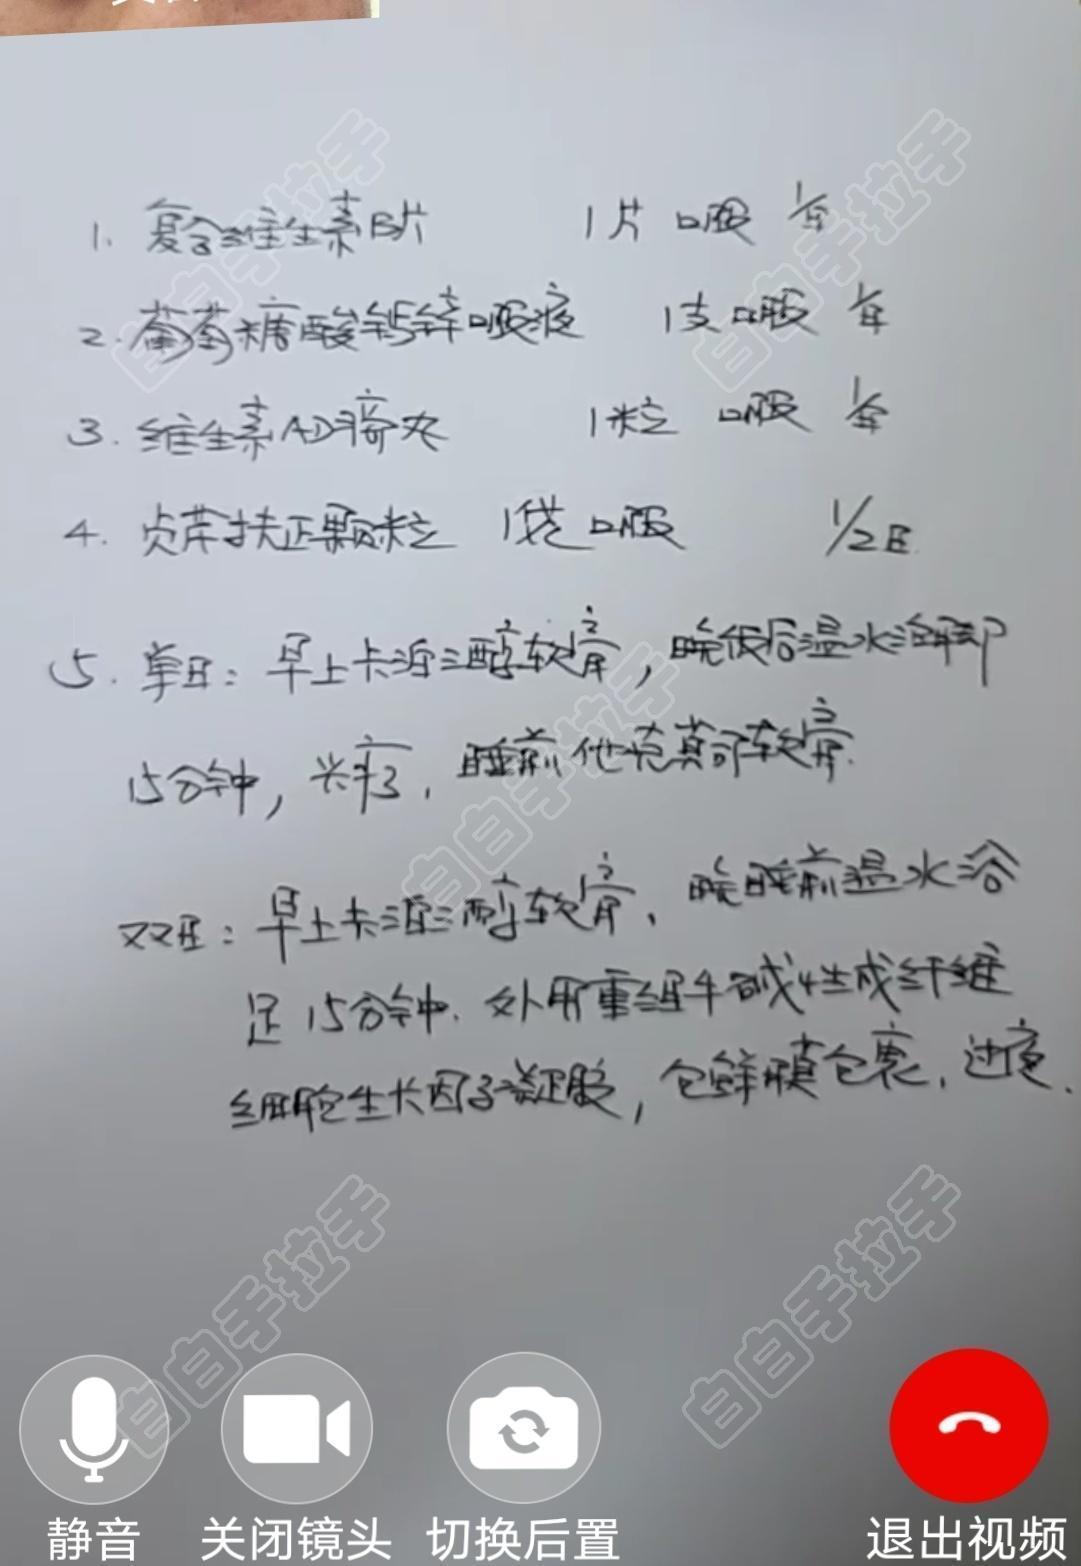 1. 复合维生素B片 1片 口服 1/年
2. 葡萄糖酸钙锌口服液 1支口服 1/年
3. 维生素AD滴丸 1粒 口服 1/年
4. 贞芪扶正颗粒 1袋口服 1/2日
5. 单日: 早上卡泊三醇软膏, 晚饭后温水浴
15分钟, , 睡前他克莫司软膏.
双日: 早上卡泊三醇软膏、晚睡前温水浴
足15分钟. 外用重组牛碱性成纤维
细胞生长因子凝胶, 包鲜膜包裹, 过夜.
白白手拉手
白白手拉手
白白手拉手
白白手拉手
白白手拉手
静音 关闭镜头 切换后置 退出视频